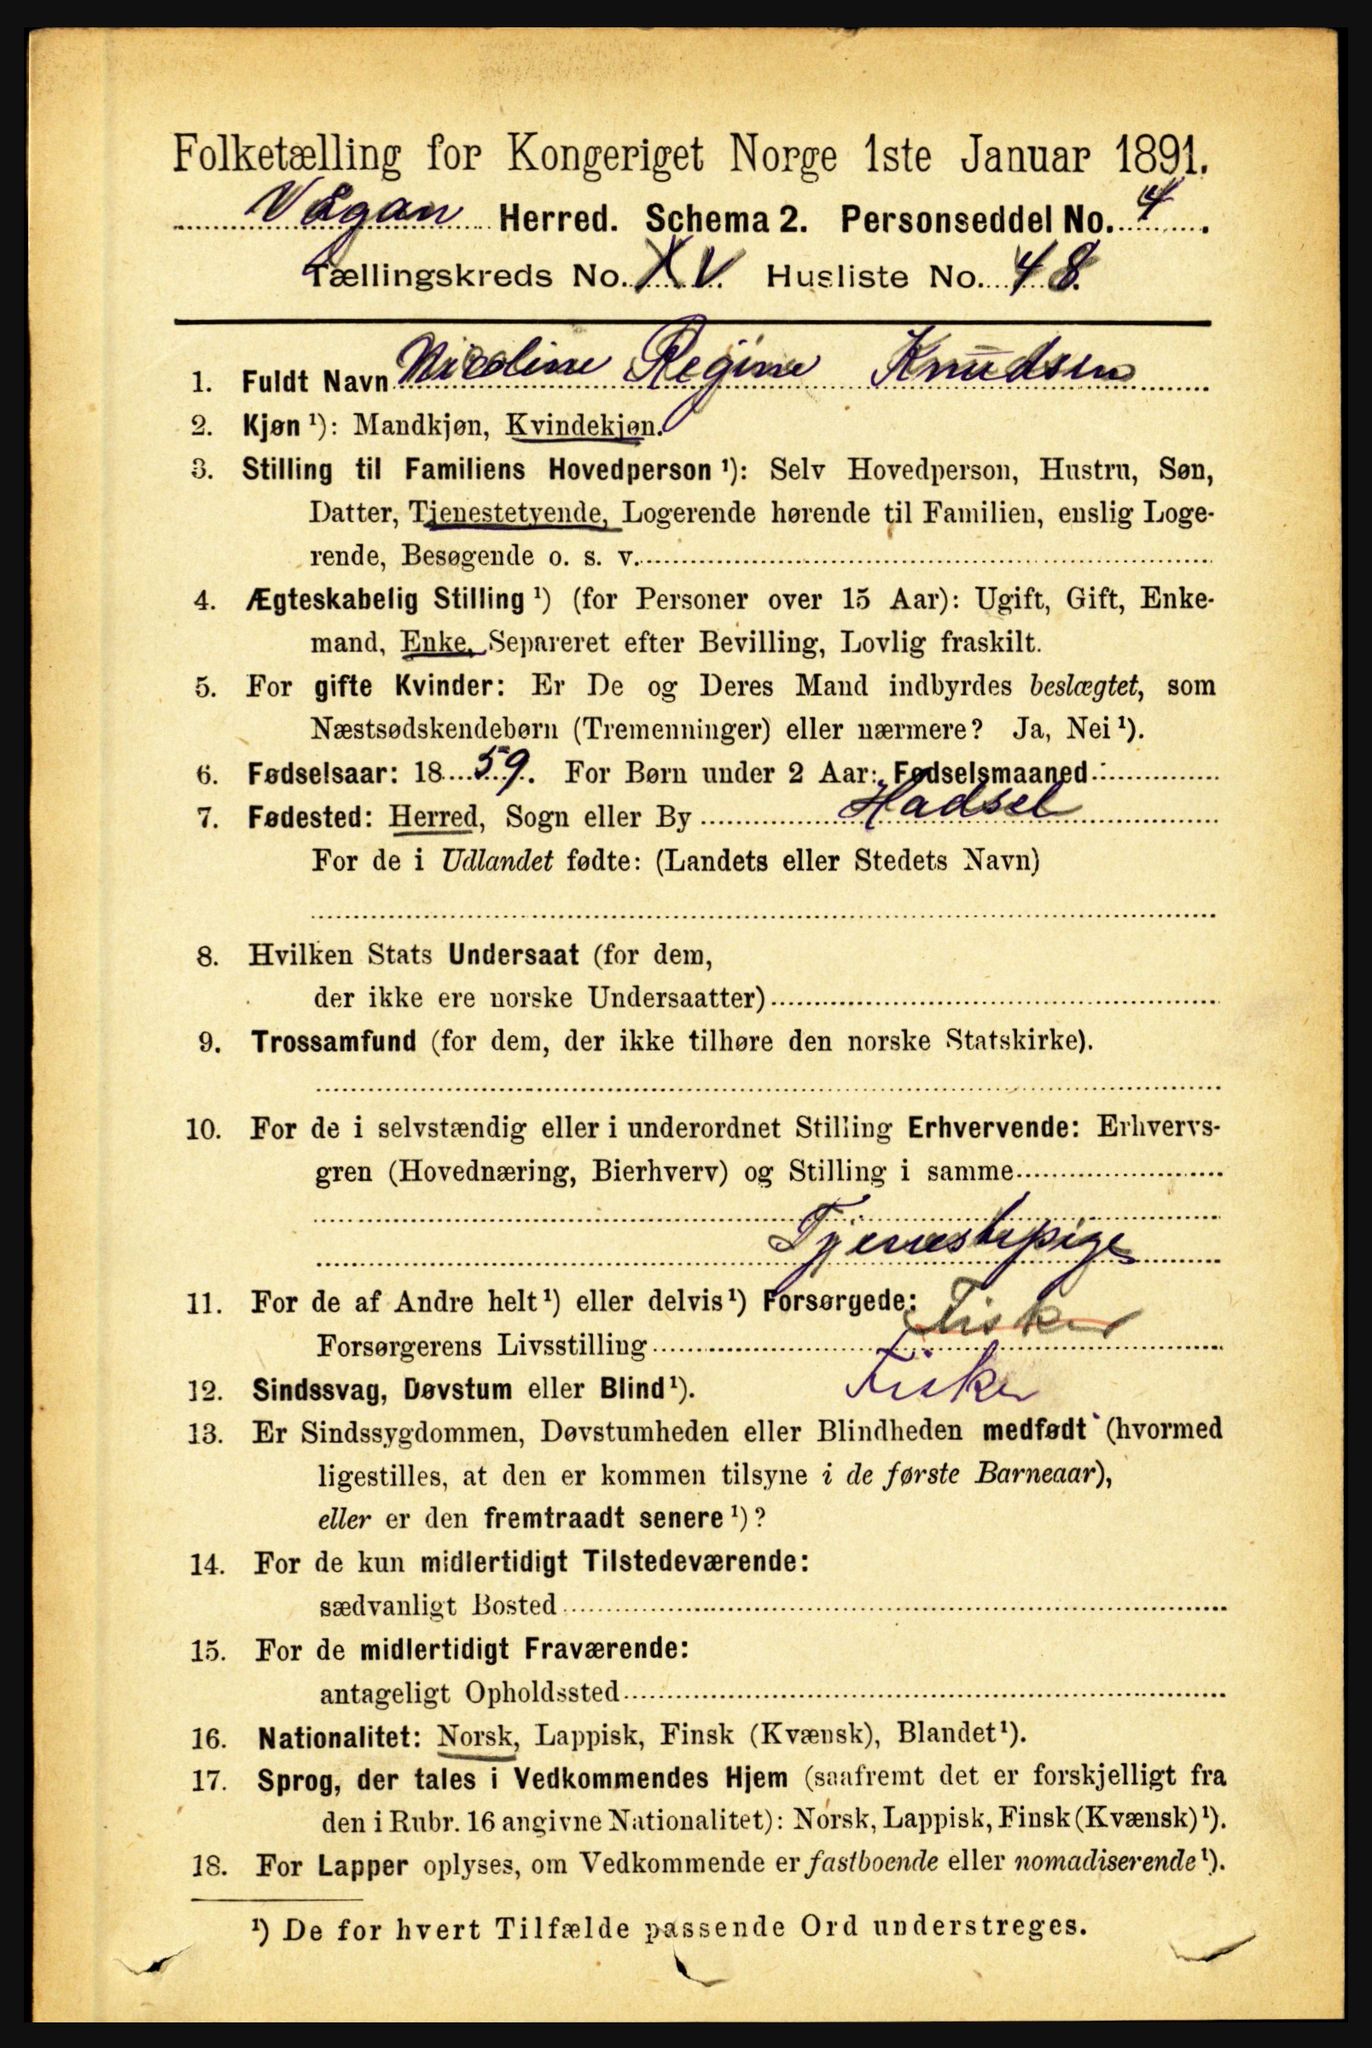 Folketælling for Kongeriget Norge 1ste Januar 1891.
Vågan Herred. Schema 2. Personseddel No. 4.
Tællingskreds No. XV. Husliste No. 48.
1. Fuldt Navn Nicoline Regine Knudsen
2. Kjøn ¹): Mandkjøn, Kvindekjøn.
3. Stilling til Familiens Hovedperson ¹): Selv Hovedperson, Hustru, Søn,
Datter, Tjenestetyende, Logerende hørende til Familien, enslig Loge-
rende, Besøgende o. s. v.
4. Ægteskabelig Stilling ¹) (for Personer over 15 Aar): Ugift, Gift, Enke-
mand, Enke, Separeret efter Bevilling, Lovlig fraskilt.
5. For gifte Kvinder: Er De og Deres Mand indbyrdes beslægtet, som
Næstsødskendebørn (Tremenninger) eller nærmere? Ja, Nei ¹).
6. Fødselsaar: 1859. For Børn under 2 Aar: Fødselsmaaned
7. Fødested: Herred, Sogn eller By Hadsel
For de i Udlandet fødte: (Landets eller Stedets Navn)
8. Hvilken Stats Undersaat (for dem,
der ikke ere norske Undersaatter)
9. Trossamfund (for dem, der ikke tilhøre den norske Statskirke).
10. For de i selvstændig eller i underordnet Stilling Erhvervende: Erhvervs-
gren (Hovednæring, Bierhverv) og Stilling i samme
Tjenestepige
11. For de af Andre helt ¹) eller delvis ¹) Forsørgede:
Forsørgerens Livsstilling Fisker
12. Sindssvag, Døvstum eller Blind ¹). Fisker
13. Er Sindssygdommen, Døvstumheden eller Blindheden medfødt (hvormed
ligestilles, at den er kommen tilsyne i de første Barneaar),
eller er den fremtraadt senere ¹)?
14. For de kun midlertidigt Tilstedeværende:
sædvanligt Bosted
15. For de midlertidigt Fraværende:
antageligt Opholdssted
16. Nationalitet: Norsk, Lappisk, Finsk (Kvænsk), Blandet ¹).
17. Sprog, der tales i Vedkommendes Hjem (saafremt det er forskjelligt fra
den i Rubr. 16 angivne Nationalitet): Norsk, Lappisk, Finsk (Kvænsk) ¹).
18. For Lapper oplyses, om Vedkommende er fastboende eller nomadiserende ¹).
¹) De for hvert Tilfælde passende Ord understreges.